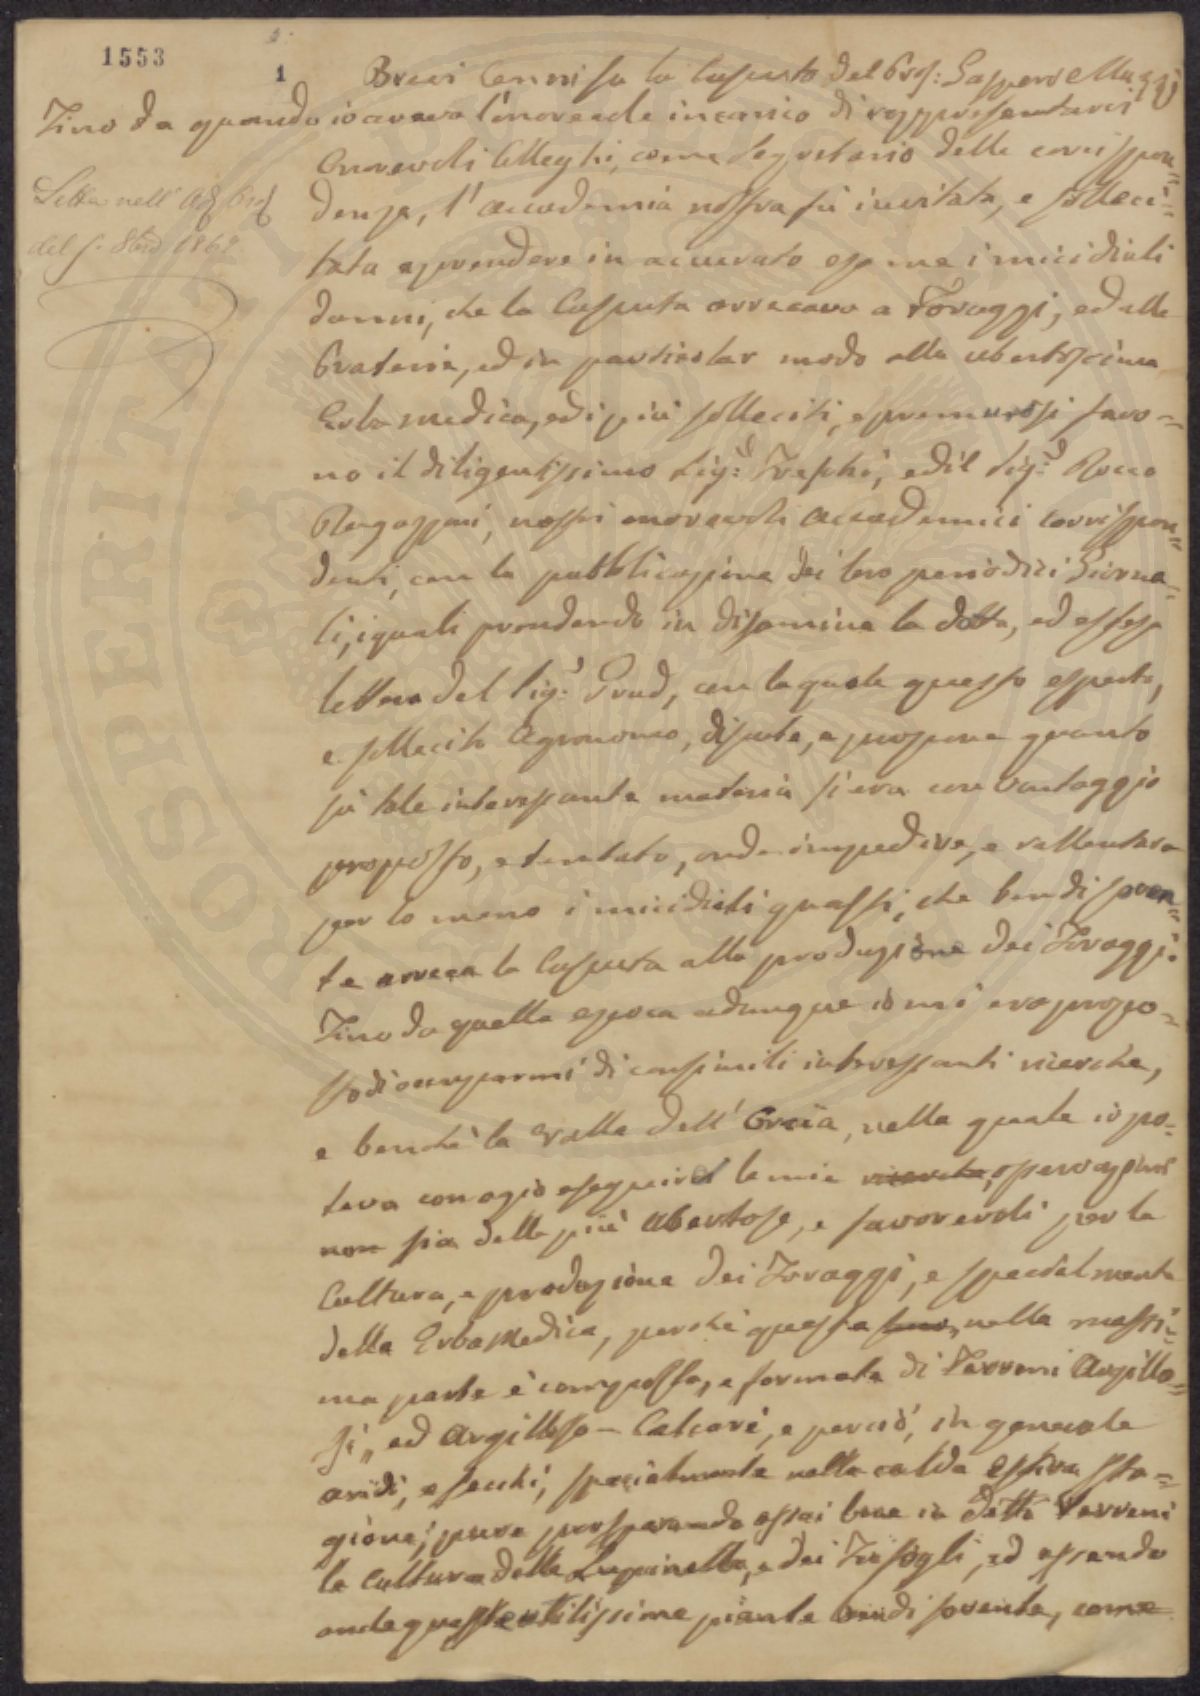 1553
1
Brevi Cenni su la Cuscuta del Prof: Gaspero Mazzi
Fino da quando io aveva l'onorevole incarico di rappresentarvi
Onorevoli Colleghi, come Segretario delle corrispon=
Letta nell' Ad
denze, l'accademia nostra fù invitata, e solleci=
del 5. 8bre 1862
tata a prendere in accurato esame i micidiali
danni, che la Cuscuta arrecava a Foraggi, ed alle
Praterie, ed in particolar modo alla ubertosissima
Erba medica, ed i più solleciti, e premurosi furo=
no il diligentissimo Sig:r ed il Sig:r Rocco
Ragazzoni, nostri onorevoli accademici corrispon=
denti, con la pubblicazione dei loro periodici Giorna=
li, i quali prendendo in disamina la dotta, ed estesa
lettera del Sig:r con la quale questo esperto,
e sollecito Agronomo, discute, e propone quanto
sù tale interessante materia si era con vantaggio
proposto, e tentato, onde impedire, e rallentare
per lo meno i micidiali guasti, che bendi soven=
te arreca la Cuscuta alla produzione dei Foraggi.
Fino da quella epoca adunque io mi era propo=
sto di occuparmi di consimili interessanti ricerche,
e benchè la Valle dell' Orcia, nella quale io po=
teva con agio eseguire le mie ricerche, operazioni
non sia delle più ubertose, e favorevoli per la
Cultura, e produzione dei Foraggi, e specialmente
della Erba Medica, perchè questa nella massi=
ma parte è composta, e formata di Terreni Argillo=
si, ed Argilloso-Calcarei, e perciò, in generale
aridi, e secchi, specialmente nella calda estiva sta=
gione; pure prosperando assai bene in detti Terreni
la Cultura della Lupinella, e dei Trifogli, ed essendo
anche queste utilissime piante bendi sovente, come
PROSPERITATI PUBLICAE